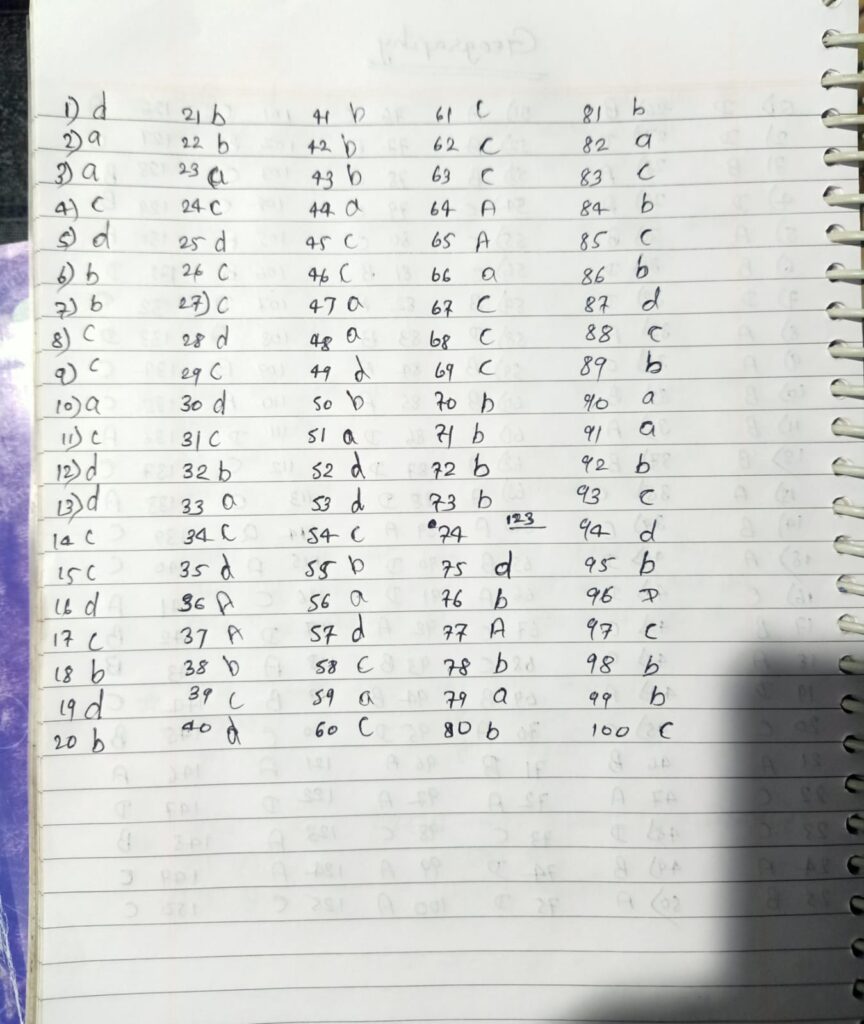 1) d 21 b 41 b 61 c 81 b
2) a 22 b 42 b 62 c 82 a
3) a 23 a 43 b 63 c 83 c
4) c 24 c 44 a 64 A 84 b
5) d 25 d 45 c 65 A 85 c
6) b 26 c 46 c 66 a 86 b
7) b 27) c 47 a 67 c 87 d
8) c 28 d 48 a 68 c 88 c
9) c 29 c 49 d 69 c 89 b
10) a 30 d 50 b 70 b 90 a
11) c 31 c 51 a 71 b 91 a
12) d 32 b 52 d 72 b 92 b
13) d 33 a 53 d 73 b 93 c
14 c 34 c 54 c 74 123 94 d
15 c 35 d 55 b 75 d 95 b
16 d 36 A 56 a 76 b 96 D
17 c 37 A 57 d 77 A 97 c
18 b 38 b 58 c 78 b 98 b
19 d 39 c 59 a 79 a 99 b
20 b 40 d 60 c 80 b 100 c